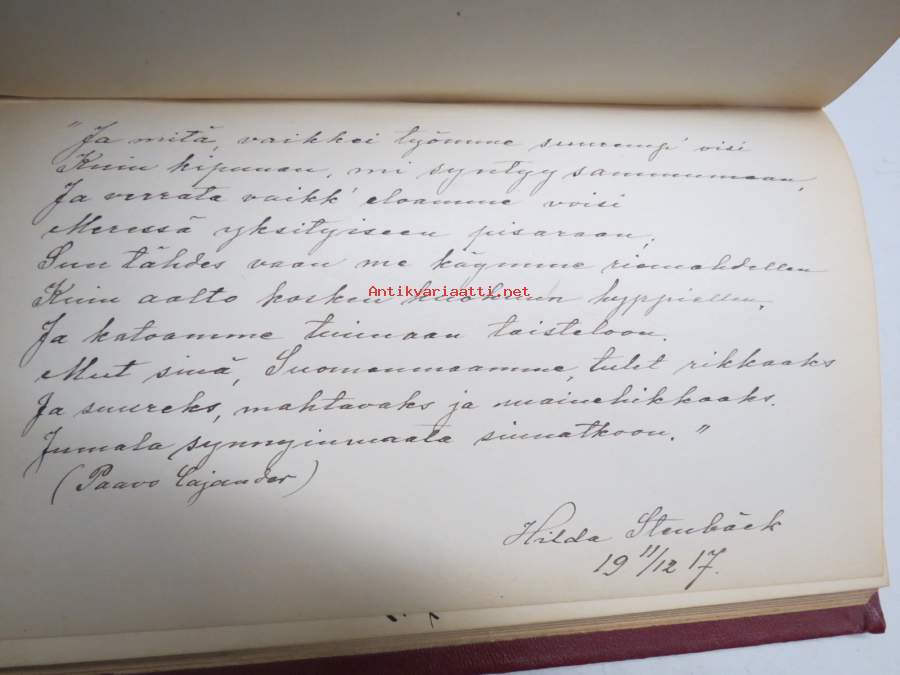 "Ja mitä, vaikkei työmme suurempi' oisi
Kuin kipunan, mi syntyy sammumaan,
Ja verrata vaikk' eloamme voisi
Meressä yksityiseen pisaraan,
Sun tähdes vaan me käymme riemahdellen
Kuin aalto kosken kuohuun hyppiellen,
Ja katoamme tuimaan taisteloon.
Mut sinä, Suomenmaamme, tulet rikkaaks
Ja suureks, mahtavaks ja mainehikkaaks.
Jumala synnyinmaata siunatkoon."
(Paavo Cajander)
Hilda Stenbäck
19 11/12 17.
Antikvariaatti.net